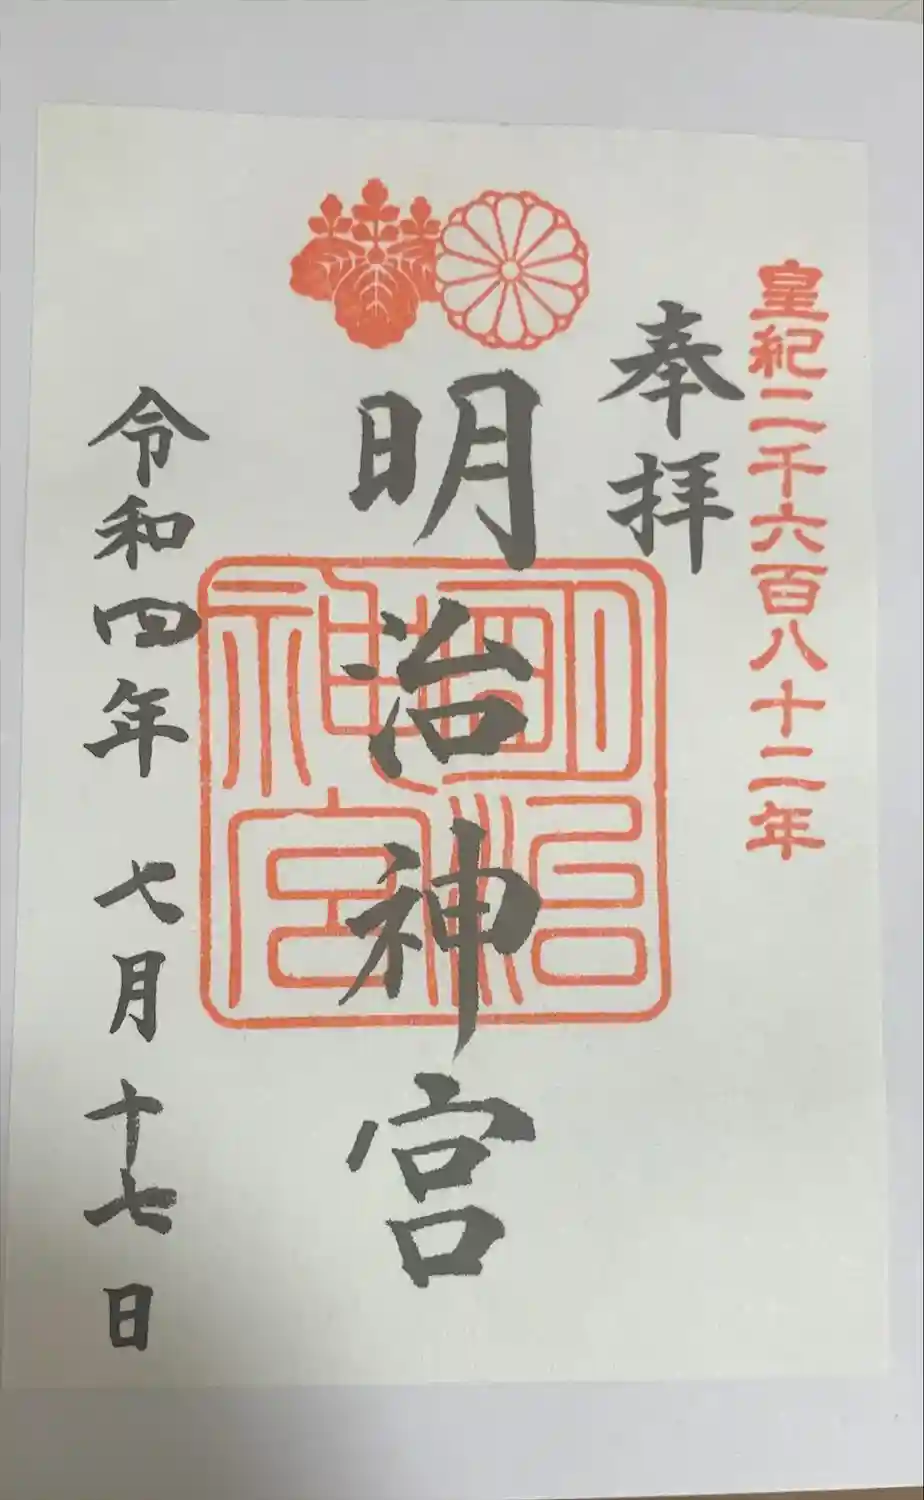 皇紀二千六百八十二年
奉拝
明治神宮
明治神宮
令和四年 七月十七日